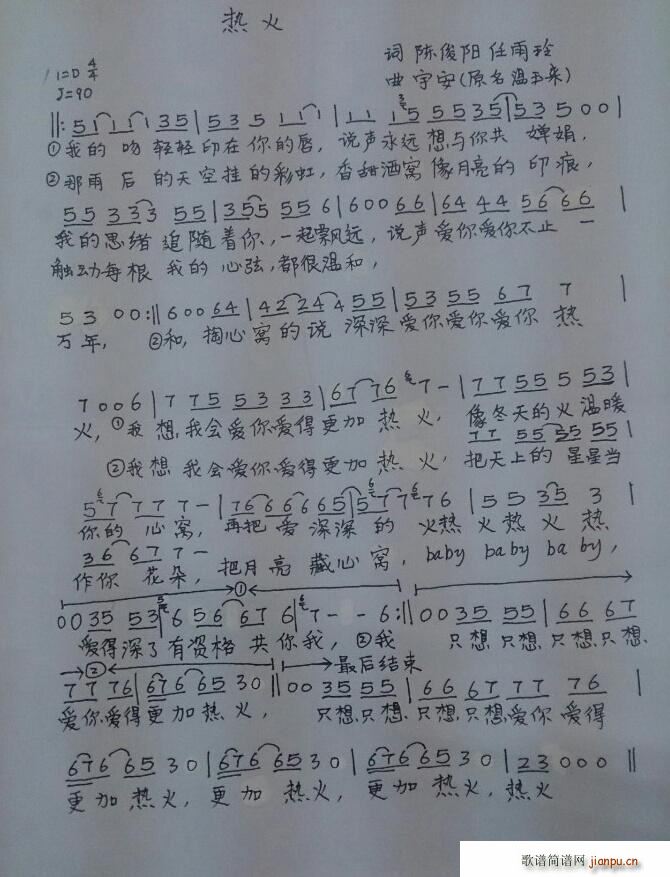 热火
词 陈俊阳 任雨玲
1=D 4/4
曲 宇安(原名温玉来)
J=90
||: 51 11 35 | 53 5 11 | 11 15 55 35 | 53 5 0 0 |
①我的 吻 轻轻印在 你的唇, 说声永远 想与你共 婵娟,
②那雨 后 的天空挂的彩虹, 香甜酒窝 像月亮的 印痕,
55 333 55 | 355 55 6 | 6 0 0 66 | 64 44 56 66 |
我的思绪 追随着你, 一起飘远, 说声爱你爱你不止 一
触动每根 我的 心弦, 都很温和,
53 00 :|| 6 0 0 64 | 42 24 4 55 | 53 55 67 7 |
万年, ②和, 掏心窝的说 深深 爱你爱你爱你 热
7 0 0 6 | 7 75 53 33 | 67 76 67 - | 77 55 5 53 |
火, ①我 想 我会爱你爱得更加 热 火, 像冬天的火 温暖
77 55 35 55 |
②我想 我会爱你爱得更加热火, 把天上的 星星当
567 77 7 - | 76 66 665 | 567 7 76 | 5 5 35 3 |
你的 心窝, 再把 爱 深深 的 火热 火热 火 热
36 67 7 -
作你 花朵, 把月亮 藏心窝, baby baby ba by,
①
00 35 53 | 6 56 67 6 | 67 - - 6 :|| 00 35 55 | 66 67
爱得深了有资格 共你我, ②我 只想 只想 只想 只想
② 最后结束
77 76 | 676 65 30 || 00 35 55 | 66 67 77 76 |
爱你爱得更加热火, 只想 只想 只想 只想 爱你 爱得
676 65 30 | 676 65 30 | 676 65 30 | 23 000 ||
更加 热火, 更加 热火, 更加 热火, 热火
歌谱简谱网
jianpu.cn